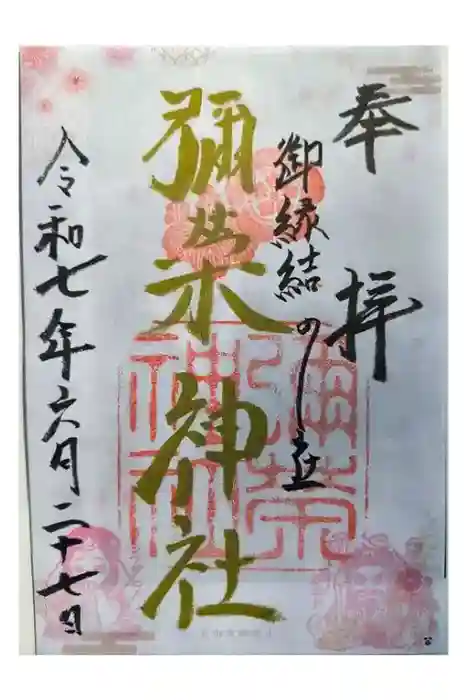 奉拝
御縁結の社
彌榮神社
令和七年六月二十七日
彌榮
神社